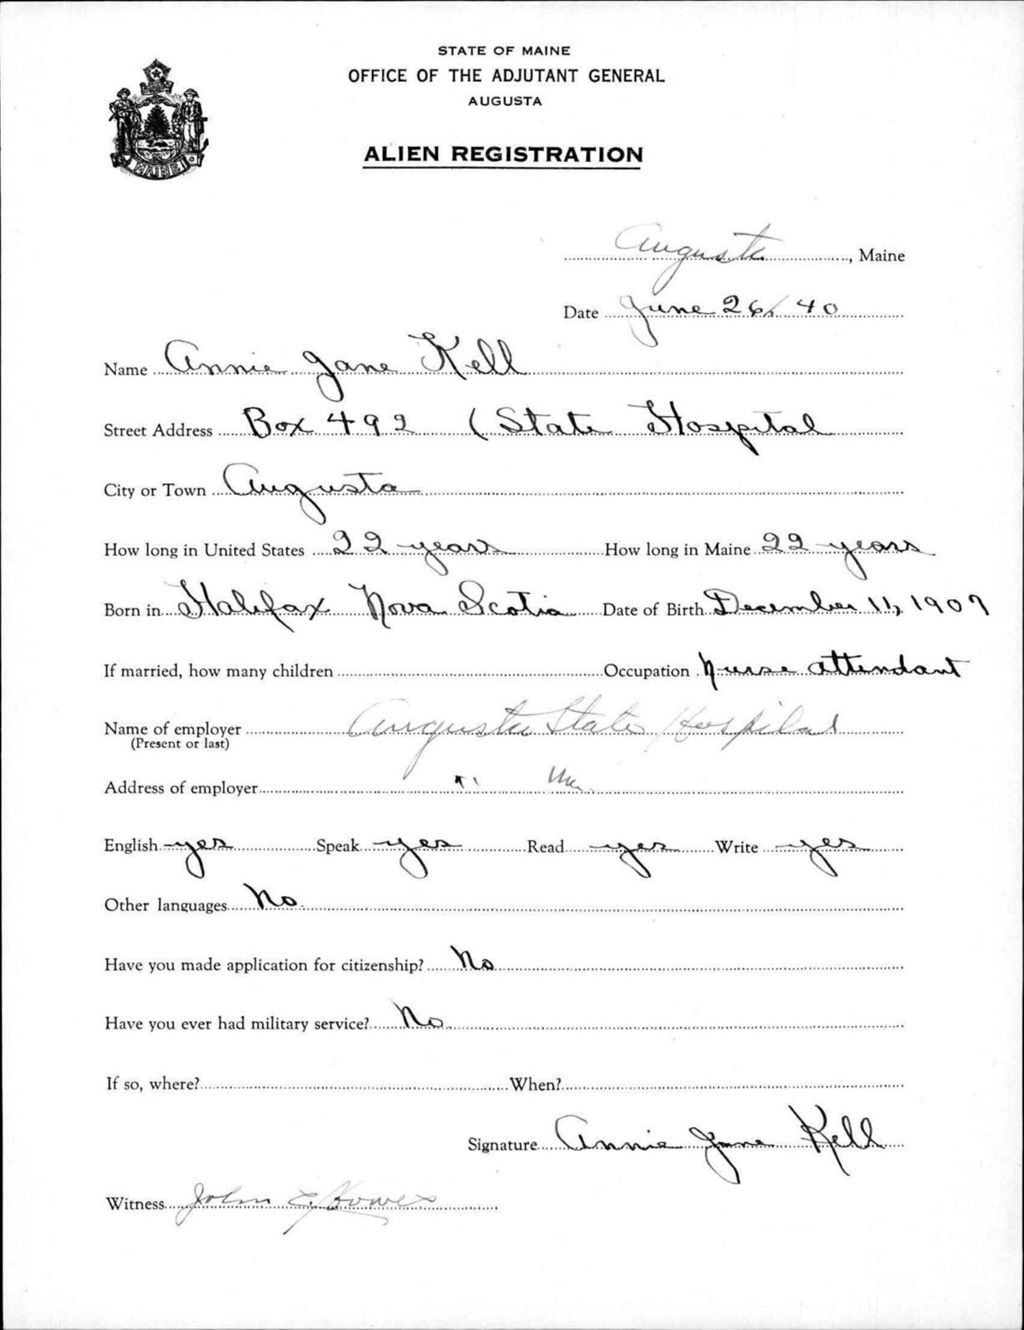 STATE OF MAINE
OFFICE OF THE ADJUTANT GENERAL
AUGUSTA
ALIEN REGISTRATION
MAINE
Augusta, Maine
Date June 26, 40
Name Annie Jane Kell
Street Address Box 492 (State Hospital
City or Town Augusta
How long in United States 22 years How long in Maine 22 years
Born in Halifax Nova Scotia Date of Birth December 11, 1907
If married, how many children Occupation Nurse attendant
Name of employer Augusta State Hospital
(Present or last)
Address of employer " Me.
English yes Speak yes Read yes Write yes
Other languages No.
Have you made application for citizenship? No
Have you ever had military service? No
If so, where? When?
Signature Annie Jane Kell
Witness John E